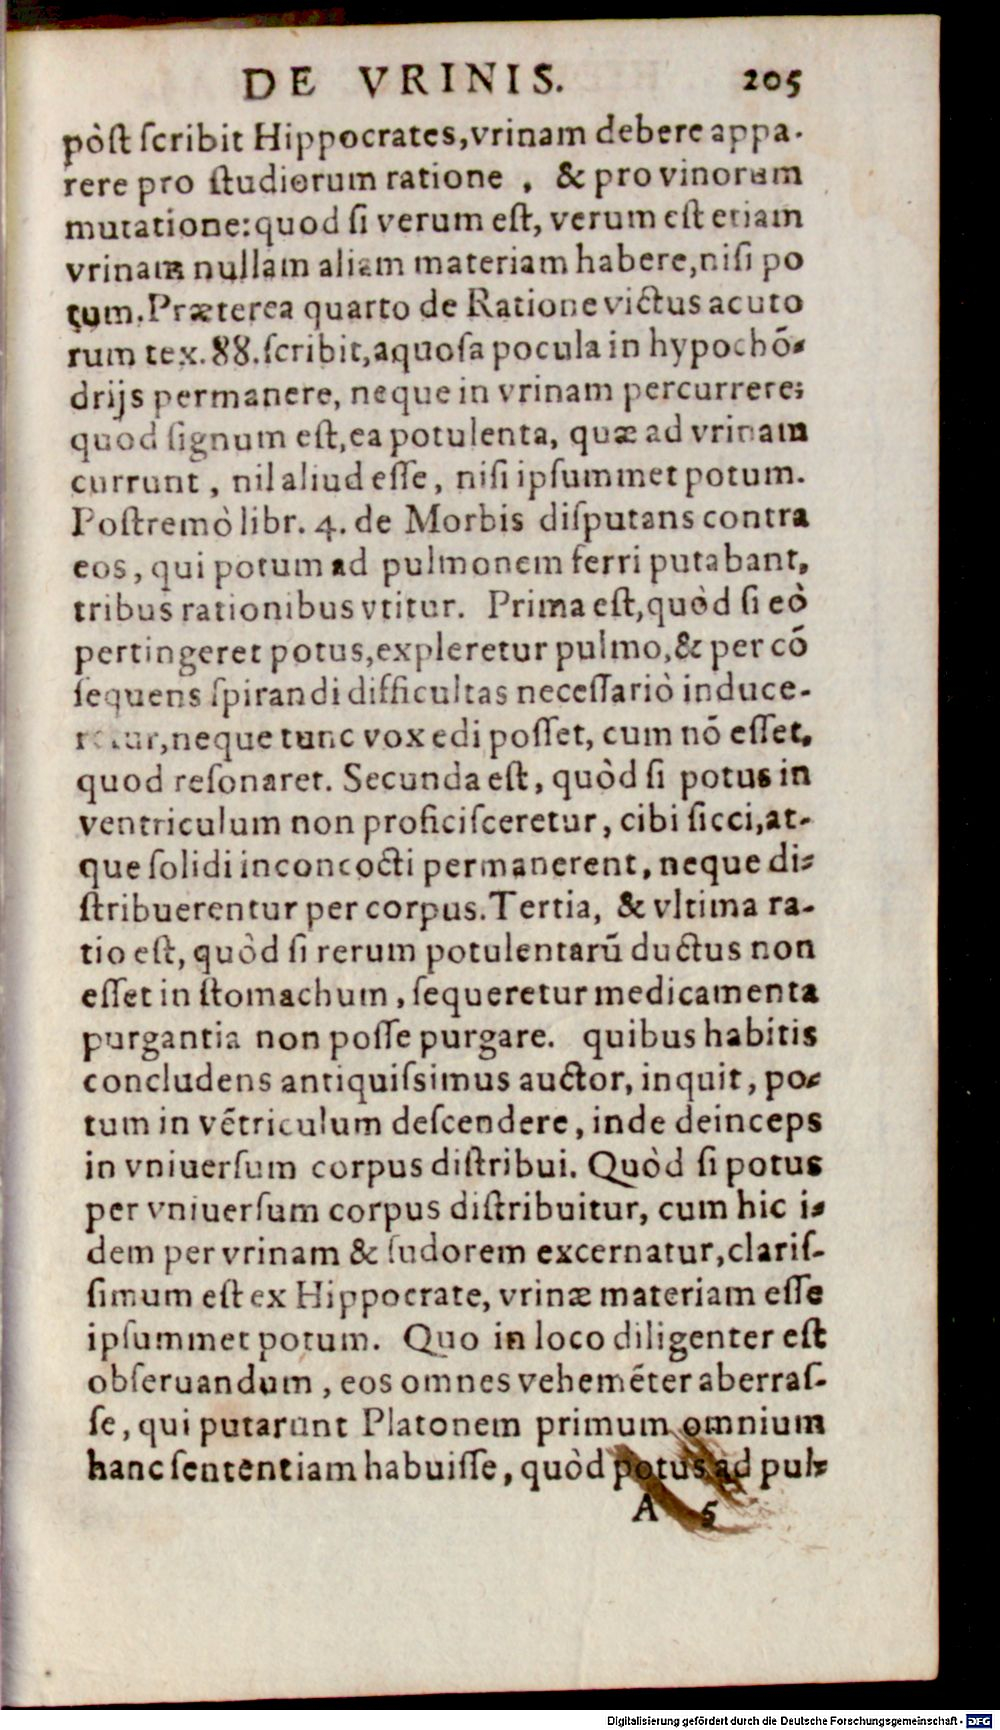 DE VRINIS. 205
pòſt ſcribit Hippocrates,vrinam debere appa-
rere pro ſtudiorum ratione , & pro vinorum
mutatione:quod ſi verum eſt, verum eſt etiam
vrinam nullam aliam materiam habere,niſi po
tum.Præterea quarto de Ratione victus acuto
rum tex.88.ſcribit,aquoſa pocula in hypochõ-
drijs permanere, neque in vrinam percurrere;
quod ſignum eſt,ea potulenta, quæ ad vrinam
currunt , nil aliud eſſe, niſi ipſummet potum.
Poſtremò libr. 4. de Morbis diſputans contra
eos, qui potum ad pulmonem ferri putabant,
tribus rationibus vtitur. Prima eſt,quòd ſi eò
pertingeret potus,expleretur pulmo,& per cõ
ſequens ſpirandi difficultas neceſſariò induce-
retur,neque tunc vox edi poſſet, cum nõ eſſet,
quod reſonaret. Secunda eſt, quòd ſi potus in
ventriculum non proficiſceretur, cibi ſicci,at-
que ſolidi inconcocti permanerent, neque di-
ſtribuerentur per corpus.Tertia, & vltima ra-
tio eſt, quòd ſi rerum potulentarũ ductus non
eſſet in ſtomachum, ſequeretur medicamenta
purgantia non poſſe purgare. quibus habitis
concludens antiquiſsimus auctor, inquit, po-
tum in vẽtriculum deſcendere, inde deinceps
in vniuerſum corpus diſtribui. Quòd ſi potus
per vniuerſum corpus diſtribuitur, cum hic i-
dem per vrinam & ſudorem excernatur,clariſ-
ſimum eſt ex Hippocrate, vrinæ materiam eſſe
ipſummet potum. Quo in loco diligenter eſt
obſeruandum, eos omnes vehemẽter aberraſ-
ſe, qui putarunt Platonem primum omnium
hanc ſententiam habuiſſe, quòd potus ad pul-
A 5
Digitalisierung gefördert durch die Deutsche Forschungsgemeinschaft - DFG